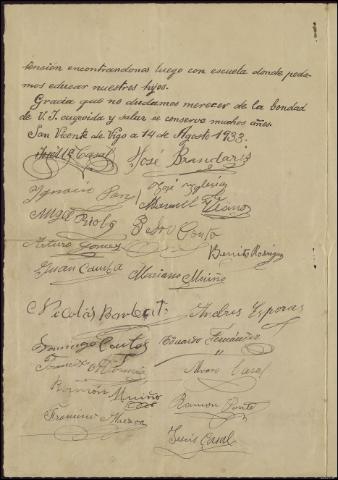 tension encontrandonos luego con escuela donde poda-
mos educar nuestros hijos.
Gracia que no dudamos merecer de la bondad
de V. I. cuya vida y salud se conserve muchos años.
San Vicente de Vigo a 14 de Agosto 1933.
Casal José Brandariz
Ignacio José Iglesia
Manuel
Pedro Couto
Arturo Gomez Benito
Juan Mariano Muiño
Nicolás Andres Esparas
Domingo Couto Eduardo Fernández
Francisco Alvaro Casal
Ramón Muiño
Ramon Ponte
Francisco
Luis Casal